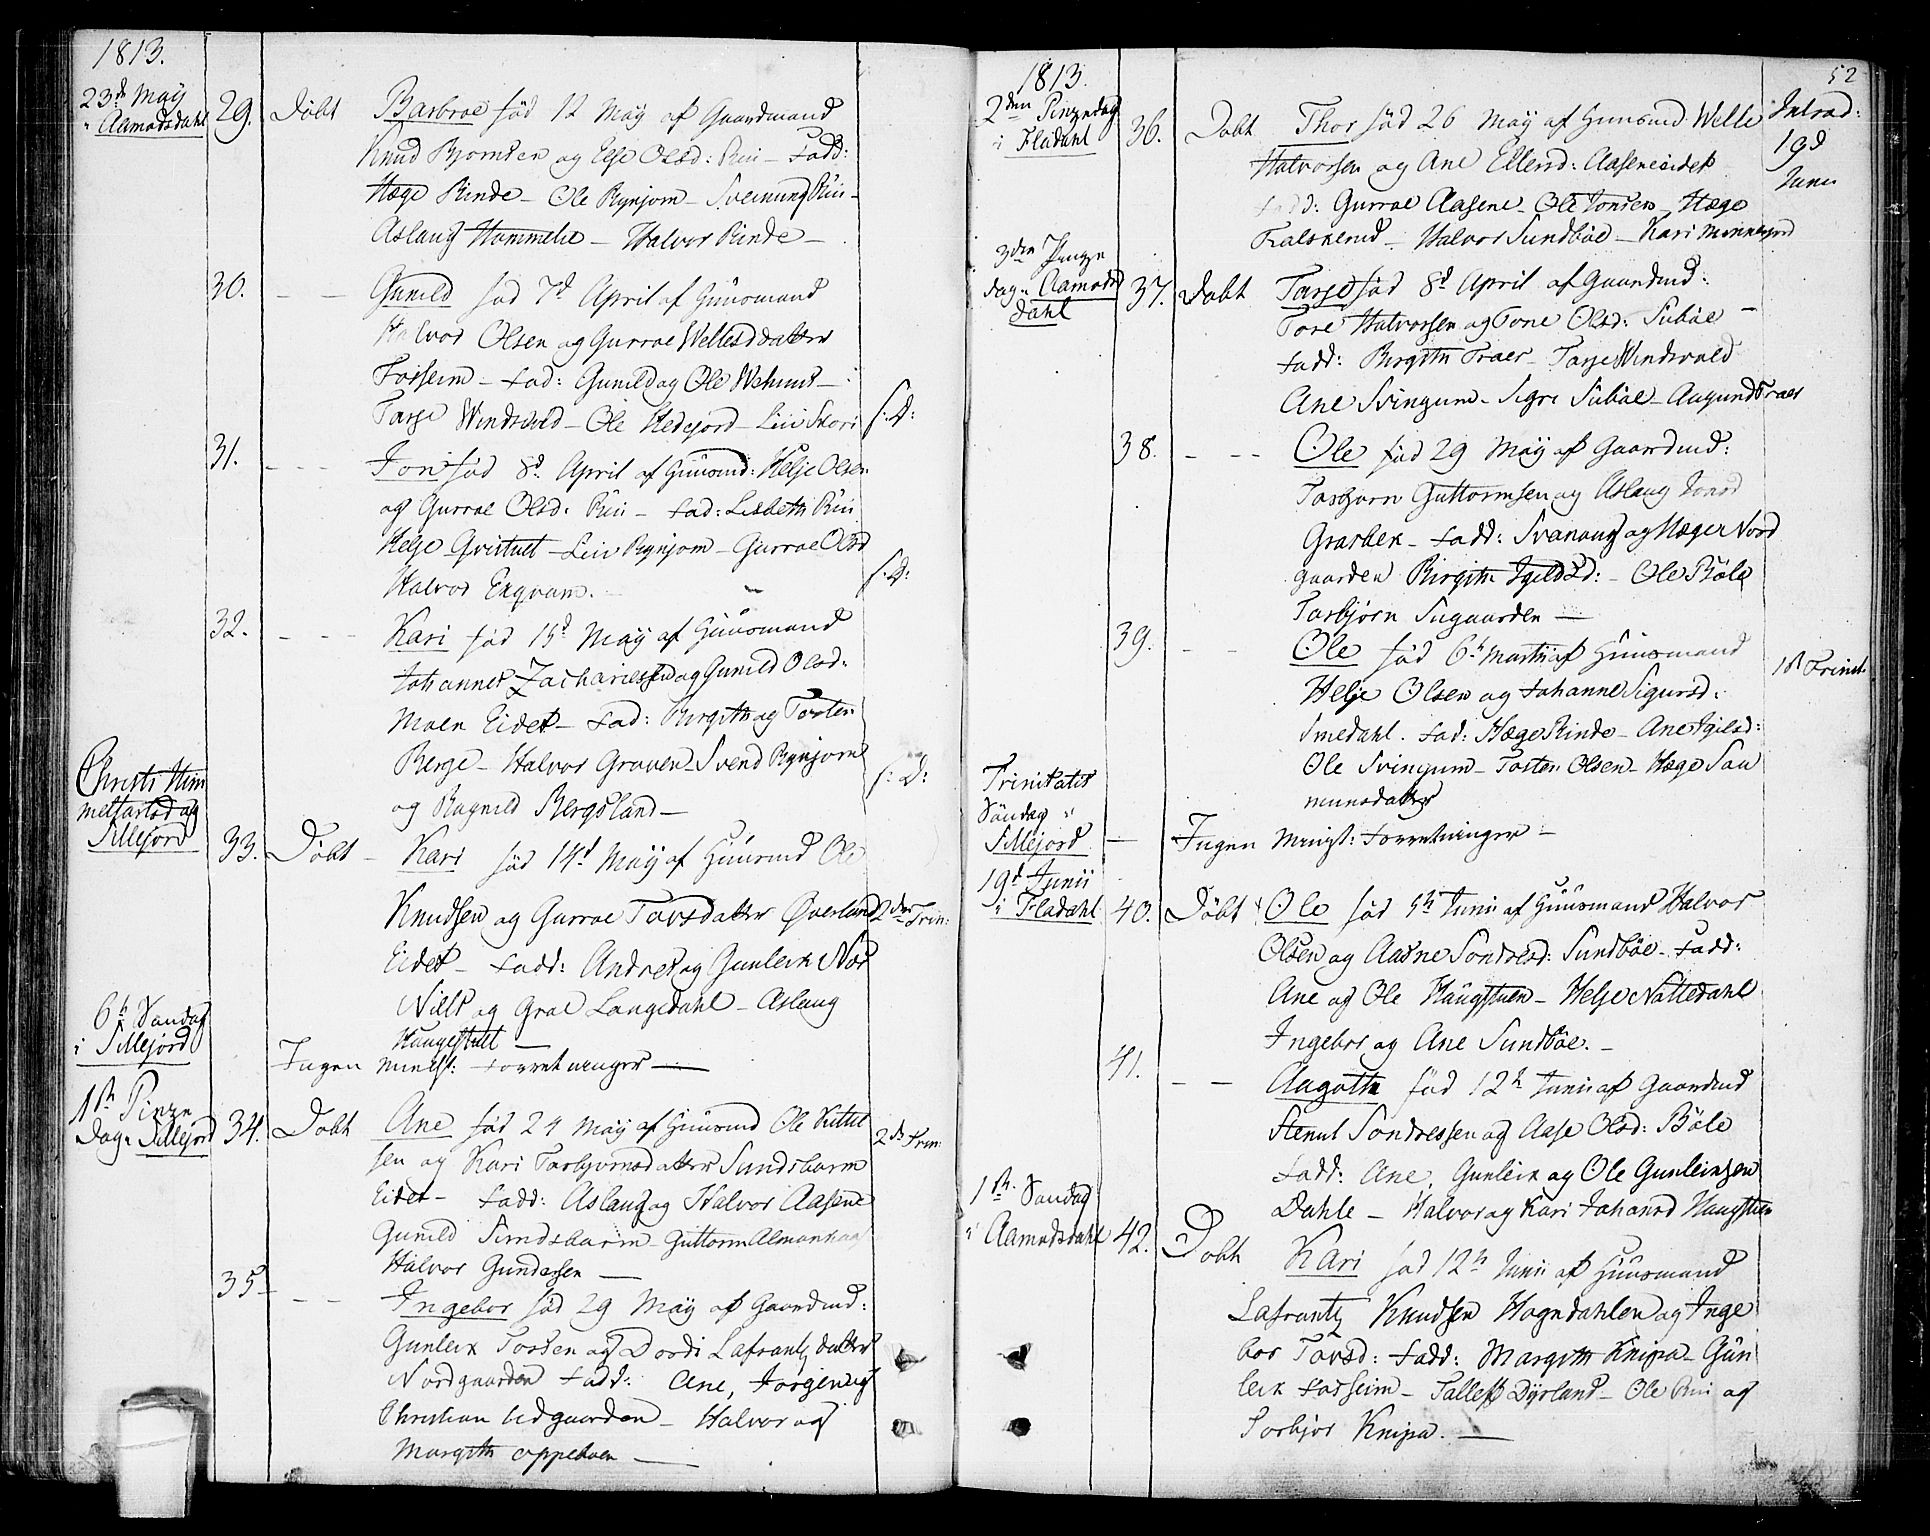 1813.
23d May
i Aamodsdahl
29. Döbt Barbroe föd 12 May af Gaardmand
Knud Bjornsen og Else Olsd: Rui - Fadd:
Hæge Rinde - Ole Rynjom - Sveinung Rui -
Aslaug Hommelie - Halvor Rinde -
30. - - Gunild föd 7d April af Huusmand
Halvor Olsen og Gurroe Wellesdatter
Forseim - Fad: Gunild og Ole
Tarje Windsvold - Ole Hedejord - Liv Skori
31. - - - Jon föd 8d April af Huusmd: Helje Olsen
og Gurroe Olsd. Rui - Fad: Lisbeth Rui
Helje Qvistult - Leiv Rynjom - Gurroe Olsd
Halvor Exqvam.
32. - - - Kari föd 15d May af Huusmand
Johannes Zachariesen og Gunild Olsd:
Moen Eidet - Fad: Birgith og Torsten
Berge - Halvor Graven - Svend Rynjom
og Ragnild Bergsland -
Christi Him
melfartsdag
Sillejord
33. Döbt - Kari föd 14d May af Huusmd Ole
Knudsen og Gurroe Torsdatter Øverland
2den Trin:
Eidet - Fadd: Andres og Gunleik Nor
Niels og Groe Langedahl - Aslaug
Haugestult -
6th Söndag
i Sillejord
Ingen Minist: Forretninger -
1th Pinze
dag i Sillejord
34. Döbt Ane föd 24 May af Huusmd Ole Kittel
2d Trin:
sen og Kari Torbjornsdatter Sundsbarm
Eidet - Fadd: Aslaug og Halvor Aasene
Gunild Sundsbarm - Guttorm
Halvor Gundersen -
35 - - - Ingebor föd 29 May af Gaardmd:
Gunleik Torsen og Dordi Lafrantzdatter
Nordgaarden Fadd: Ane, Jorgen og
Christian Udgaarden - Halvor og
Margith Oppeboen -
52
1813.
2den Pinzedag
i Fladahl
36. Döbt Thor föd 26 May af Huusmd Welle
Introd:
19d
Junii
Halvorsen og Ane Ellend: Aaseneeidet
Fadd: Gurroe Aasene - Ole Jonsen - Hæge
Tralskerud - Halvor Sundböe - Kari
3den Pinze
dag i Aamods
dahl
37. Döbt Tarje föd 8d April af Gaardmd:
Tore Halvorsen og Tone Olsd: Suböe -
Fadd: Birgith Traer - Tarje Windsvold
Ane Svingum - Sigri Suböe - Augund Traer
38. - - - Ole föd 29 May af Gaardmd:
Torbjorn Guttormsen og Aslaug Jonsd
Grasbek - Fadd: Svanaug og Hæge Nord
gaarden Birgith Igilsd: - Ole Böle
Torbjörn Sugaarden -
39. - - Ole föd 6th Martii af Huusmand
1st Trinit.
Helje Olsen og Johanne Sigursd:
Smedahl. Fad: Hæge Rinde - Ane Igilsd:
Ole Svingum - Torsten Olsen - Hæge Sau
munsdatter
Trinitatis
Söndag i
Sillejord
- Ingen Minist: Forretninger -
19d Junii
i Fladahl
40. Döbt Ole föd 5th Junii af Huusmand Halvor
Olsen og Aasne Sondresd: Sundböe - Fadd:
Ane og Ole Haugstuen - Helje Nattedahl
Ingebor og Ane Sundböe. -
41. - - Aagoth föd 12th Junii af Gaardmd
Stenul Sondressen og Aase Olsd: Böle
Fadd: Ane, Gunleik og Ole Gunleiksen
Dahle - Halvor og Kari Johansd Haugstuen
1th Söndag
i Aamodsdahl
42. Döbt Kari föd 12th Junii af Huusmand
Lafrantz Knudsen Hogndahlen og Inge
bor Torsd: Fadd: Margith Knipa - Gun
leik Forseim - Tallef Dyrland - Ole Rui og
Torbjör Knipa. -